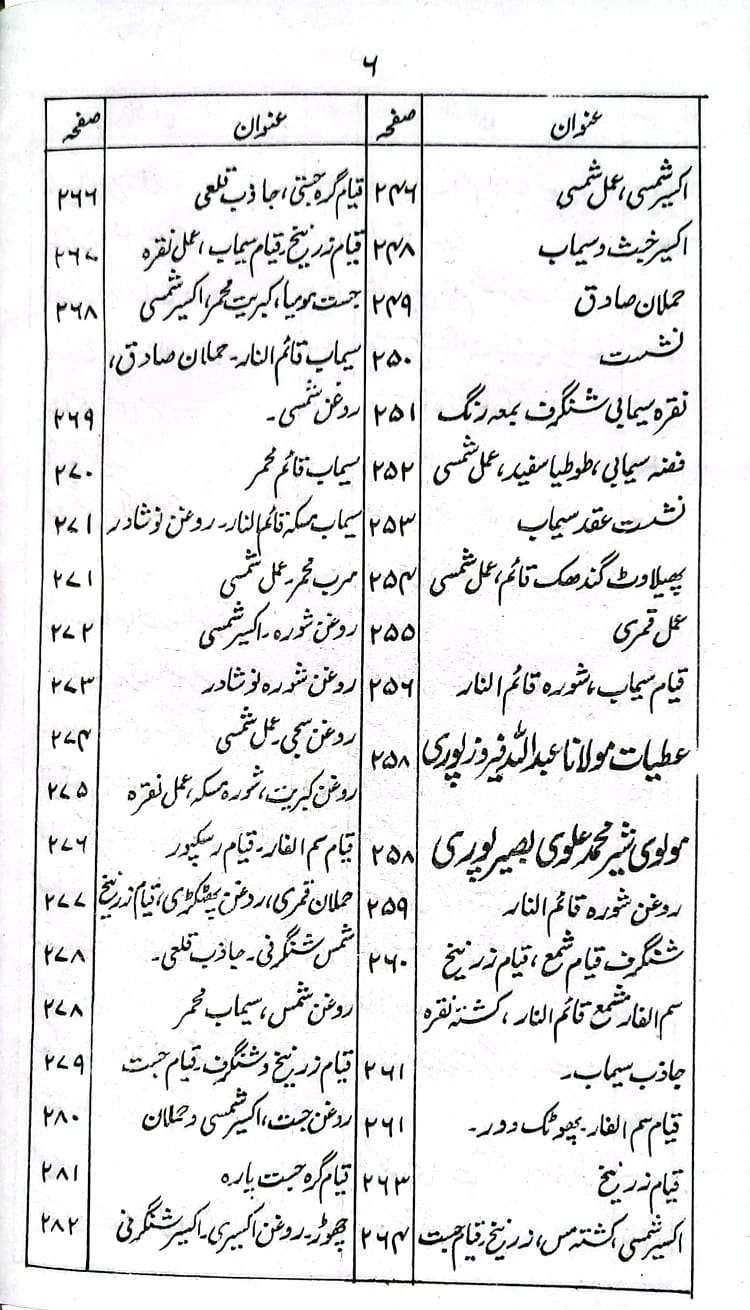 ۶
عنوان صفحہ عنوان صفحہ
اکسیر شمسی، عمل شمسی ۲۴۶
اکسیر خبث و سیماب ۲۴۸
حملان صادق ۲۴۹
نشست ۲۵۰
نقرہ سیمابی شنگرف بمعہ رنگ ۲۵۱
فضہ سیمابی، طوطیا سفید، عمل شمسی ۲۵۲
نشست عقد سیماب ۲۵۳
پھیلاوٹ گندھک قائم، عمل شمسی ۲۵۴
عمل قمری ۲۵۵
قیام سیماب، شورہ قائم النار ۲۵۶
عطیات مولانا عبداللہ فیروزپوری ۲۵۸
مولوی شیر محمد علوی بصیرپوری ۲۵۸
روغن شورہ قائم النار ۲۵۹
شنگرف قیام شمع، قیام زرنیخ ۲۶۰
سم الفار مشمع قائم النار، کشتہ نقرہ
جاذب سیماب۔ ۲۶۱
قیام سم الفار۔ پھوٹک دور۔ ۲۶۱
قیام زرنیخ ۲۶۳
اکسیر شمسی کشتہ مس، زرنیخ، قیام جست ۲۶۴
قیام گرہ جستی، جاذب قلعی ۲۶۶
قیام زرنیخ۔ قیام سیماب، عمل نقرہ ۲۶۷
جست مومیا، کبریت محمر، اکسیر شمسی ۲۶۸
سیماب قائم النار۔ حملان صادق،
روغن شمسی۔ ۲۶۹
سیماب قائم محمر ۲۷۰
سیماب مسکہ قائم النار۔ روغن نوشادر ۲۷۱
سرب محمر۔ عمل شمسی ۲۷۱
روغن شورہ۔ اکسیر شمسی ۲۷۲
روغن شورہ نوشادر ۲۷۳
روغن سجی۔ عمل شمسی ۲۷۴
روغن کبریت، شورہ مسکہ، عمل نقرہ ۲۷۵
قیام سم الفار۔ قیام رسکپور ۲۷۶
حملان قمری، روغن پھٹکڑی، قیام زرنیخ ۲۷۷
شمس شنگرفی۔ جاذب قلعی۔ ۲۷۸
روغن شمس، سیماب محمر ۲۷۸
قیام زرنیخ و شنگرف۔ قیام جست ۲۷۹
روغن جست، اکسیر شمسی و حملان ۲۸۰
قیام گرہ جست پارہ ۲۸۱
چھوڑ۔ روغن اکسیری۔ اکسیر شنگرفی ۲۸۲